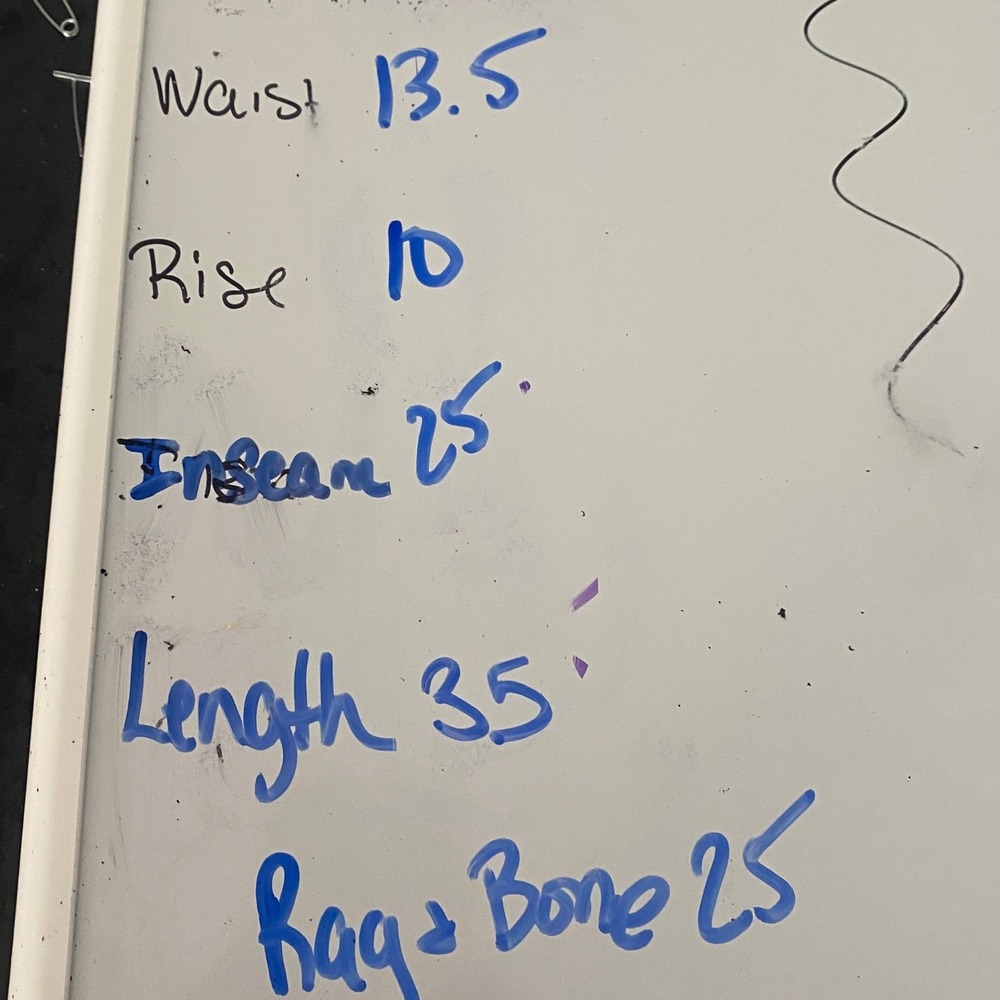 Waist 13.5
Rise 10
Inseam 25
Length 35
Rag & Bone 25